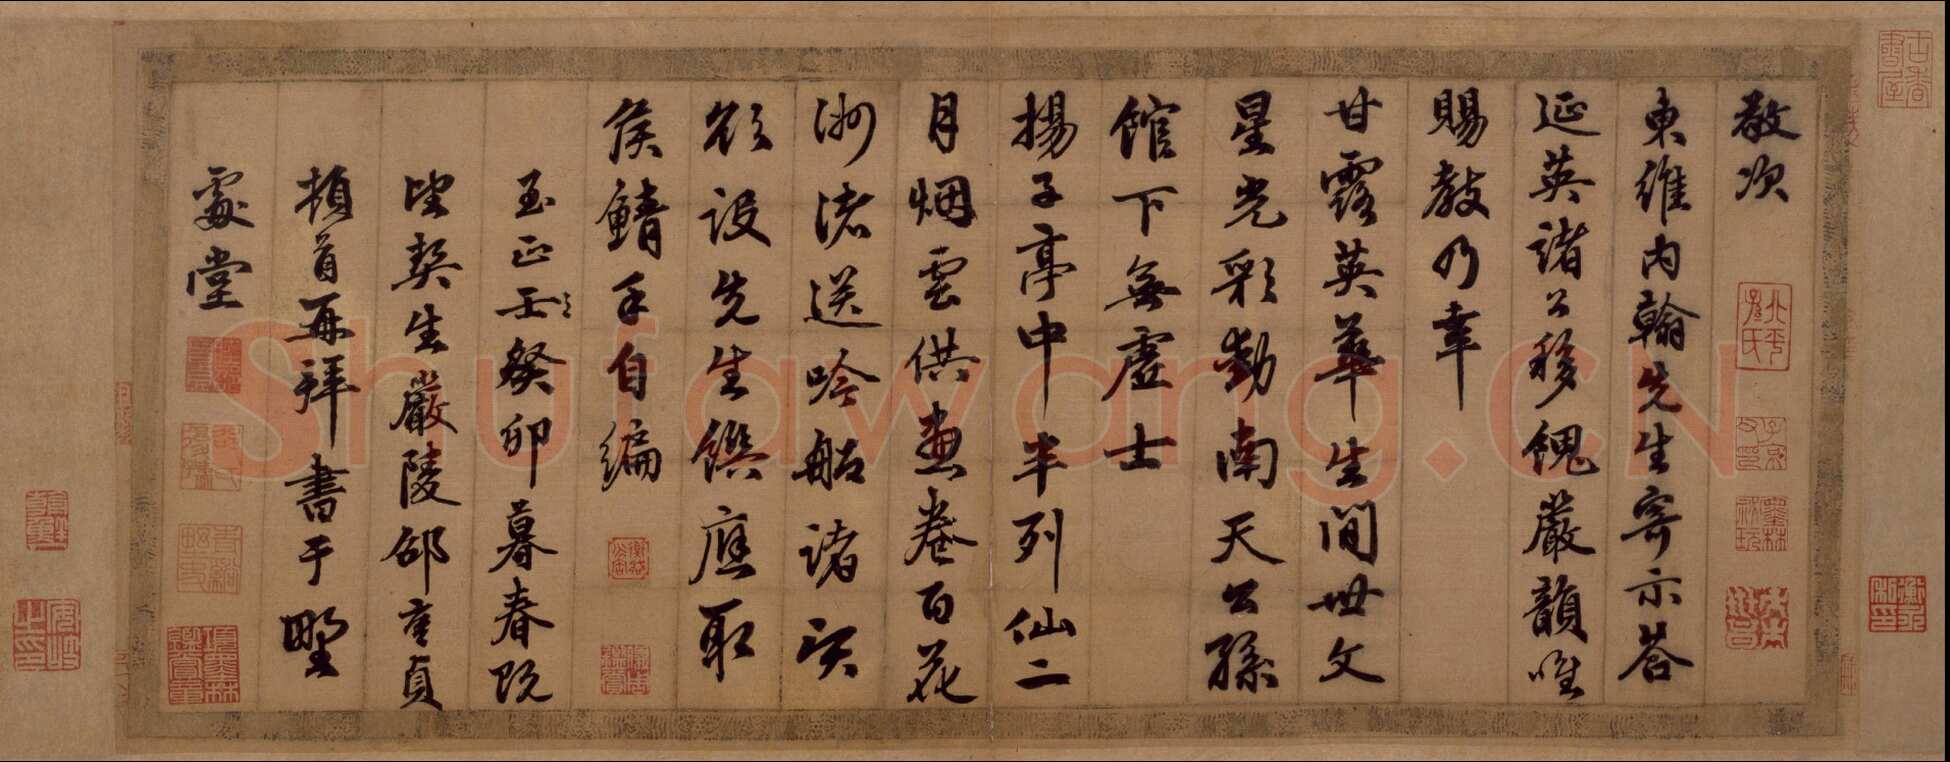 敬次
東維內翰先生寄示答
延英諸公移餽嚴韻唯
賜教乃幸
甘露英華生間世文
星光彩動南天公孫
館下無虛士
揚子亭中半列仙二
月烟雲供畫卷百花
洲渚送吟船諸賓
欲設先生饌應取
侯鯖手自編
至正壬癸卯暮春既
望契生嚴陵邵亨貞
頓首再拜書于野
處堂
Shufawang.CN